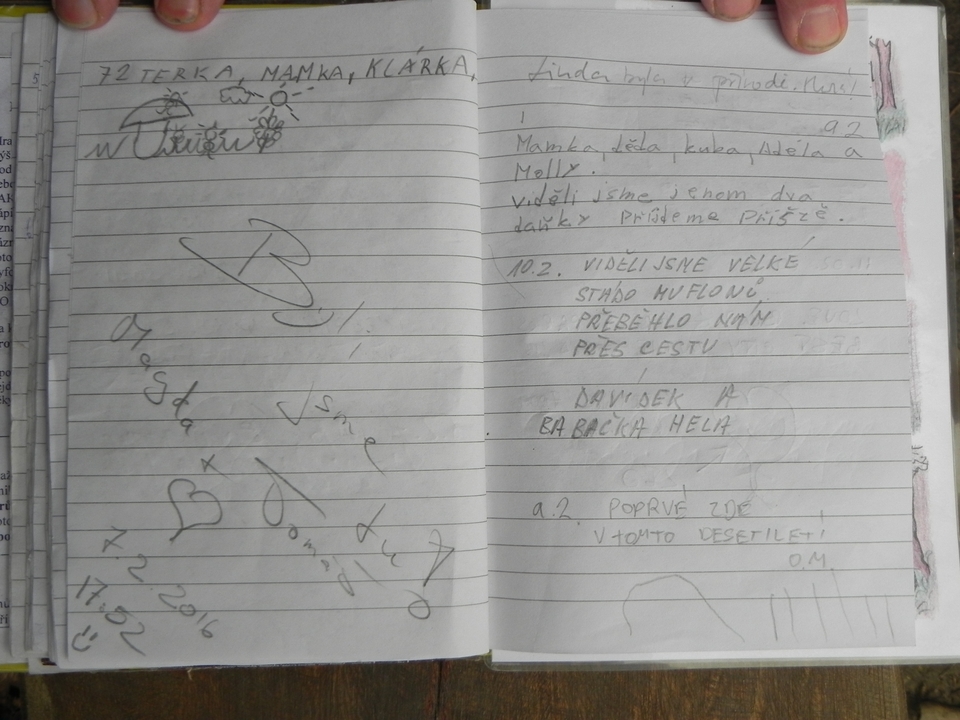 72 TERKA, MAMKA, KLÁRKA,
B
Magda
Jsme
Domča
tu
7.2.2016
17:52
Linda byla v přírodě.
9.2
Mamka, děda, kuba, Adéla a
Molly.
viděli jsme jenom dva
daňky Přijdeme Příště.
10.2. VIDĚLI JSME VELKÉ
STÁDO MUFLONŮ,
PŘEBĚHLO NÁM
PŘES CESTU
DAVÍDEK A
BABAČKA HELA
9.2. POPRVÉ ZDE
V TOMTO DESETILETÍ
O.M.